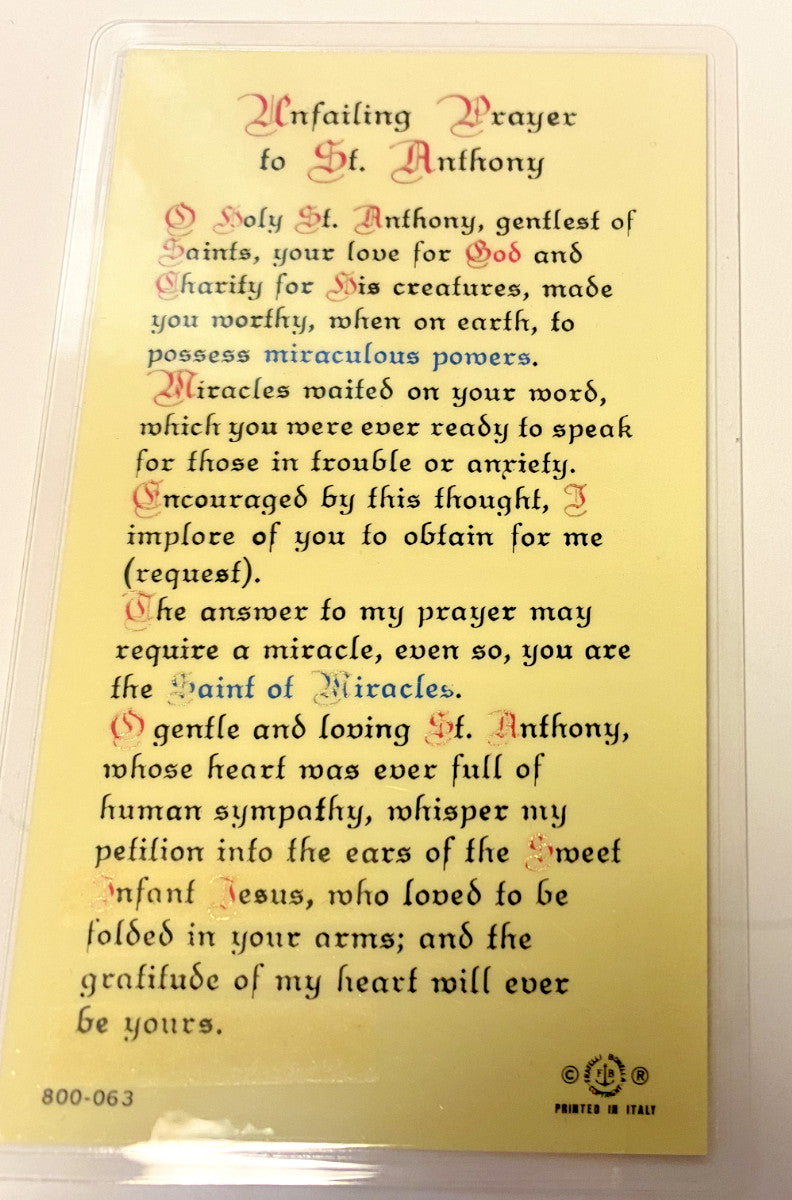 Unfailing Prayer
to St. Anthony
O Holy St. Anthony, gentlest of
Saints, your love for God and
Charity for His creatures, made
you worthy, when on earth, to
possess miraculous powers.
Miracles waited on your word,
which you were ever ready to speak
for those in trouble or anxiety.
Encouraged by this thought, I
implore of you to obtain for me
(request).
The answer to my prayer may
require a miracle, even so, you are
the Saint of Miracles.
O gentle and loving St. Anthony,
whose heart was ever full of
human sympathy, whisper my
petition into the ears of the Sweet
Infant Jesus, who loved to be
folded in your arms; and the
gratitude of my heart will ever
be yours.
800-063
© FRATELLI BONELLA COPYRIGHT FB ®
PRINTED IN ITALY